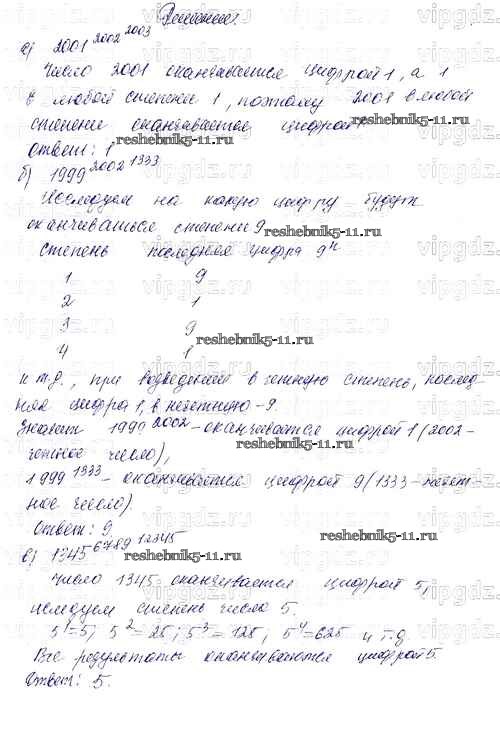 Решение.
а) 2001^2002^2003
Число 2001 оканчивается цифрой 1, а 1
в любой степени 1, поэтому 2001 в любой
степени оканчивается цифрой 1.
Ответ: 1
reshebnik5-11.ru
б) 1999^2002^1333
reshebnik5-11.ru
Исследуем на какую цифру будут
оканчиваться степени 9
reshebnik5-11.ru
степень последняя цифра 9ⁿ
1 9
2 1
3 9
reshebnik5-11.ru
4 1
и т.д., при возведении в четную степень, послед-
няя цифра 1, в нечетную - 9.
Значит 1999^2002 - оканчивается цифрой 1 (2002 -
reshebnik5-11.ru
четное число),
1999^1333 - оканчивается цифрой 9 (1333 - нечет-
reshebnik5-11.ru
ное число).
Ответ: 9.
в) 1345^6789^12345
reshebnik5-11.ru
Число 1345 оканчивается цифрой 5,
исследуем степень числа 5.
5¹=5; 5²=25; 5³=125; 5⁴=625 и т.д.
Все результаты оканчиваются цифрой 5.
Ответ: 5.
vipgdz.ru